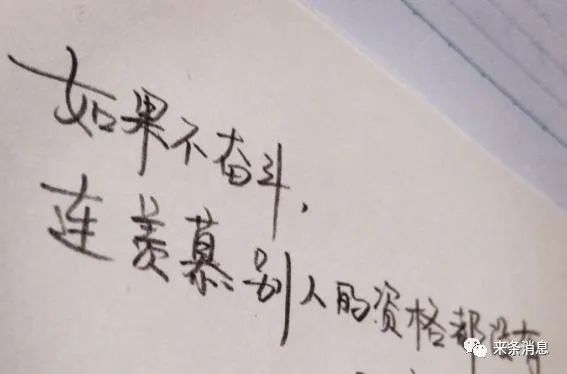 如果不奋斗，
连羡慕别人的资格都没有
来条消息